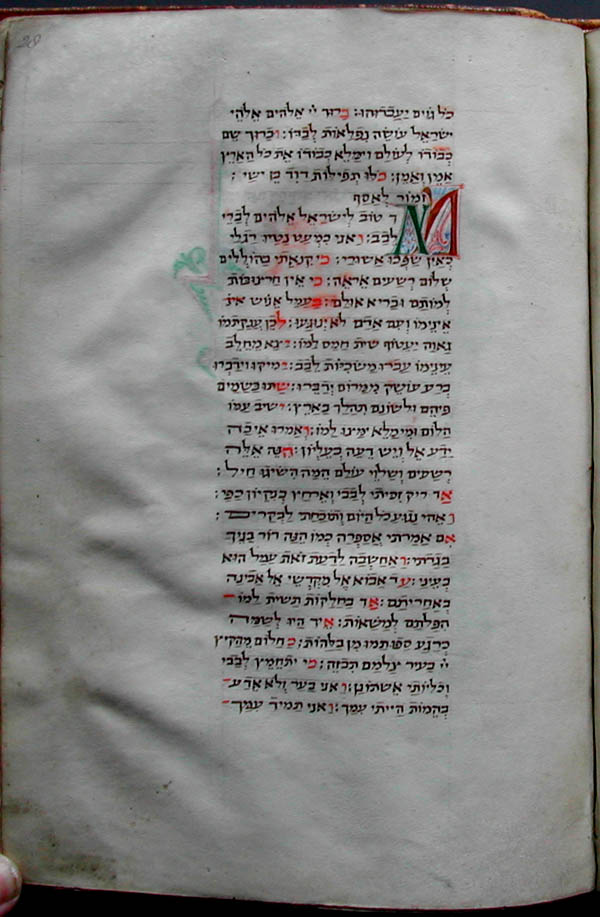 28
כל גוים יאברוהו: ברוך יי אלהים אלהי
ישראל עושה נפלאות לבדו: וברוך שם
כבודו לעולם וימלא כבודו את כל הארץ
אמן ואמן: כלו תפילות דוד בן ישי:
מזמור לאסף
אך טוב לישראל אלהים לברי
לבב: ואני כמעט נטיו רגלי
כאין שפכו אשורי: כי קנאתי בהוללים
שלום רשעים אראה: כי אין חרצובות
למותם ובריא אולם: בעמל אנוש אינ
אינימו ועם אדם לא ינוגעו: לכן ענקתמו
גאוה יעטוף שית חמס למו: יצא מחלב
עינימו עברו משכיות לבב: ימיקו וידברו
ברע עושק ממרום ידברו: שתו בשמים
פיהם ולשונם תהלך בארץ: ישיב עמו
הלום ומי מלא ימצו למו: ואמרו איכה
ידע אל ויש דעה בעליון: הנה אלה
רשעים ושלוי עולם המה השיגו חיל:
אך ריק זכיתי לבבי וארחץ בנקיון כפי:
ואהי נגוע כל היום ותוכחתי לבקרים:
אם אמרתי אספרה כמו הנה דור בניך
בגדתי: ואחשבה לדעת זאת עמל הוא
בעיני: עד אבוא אל מקדשי אל אבינה
באחריתם: אך בחלקות תשית למו
הפלתם למשאות: איך היו לשמה
כרגע ספו תמו מן בלהות: כחלום מהקיץ
יי בעיר צלמם תבזה: כי יתחמץ לבבי
וכליותי אשתונן: ואני בער ולא אדע
בהמות הייתי עמך: ואני תמיד עמך